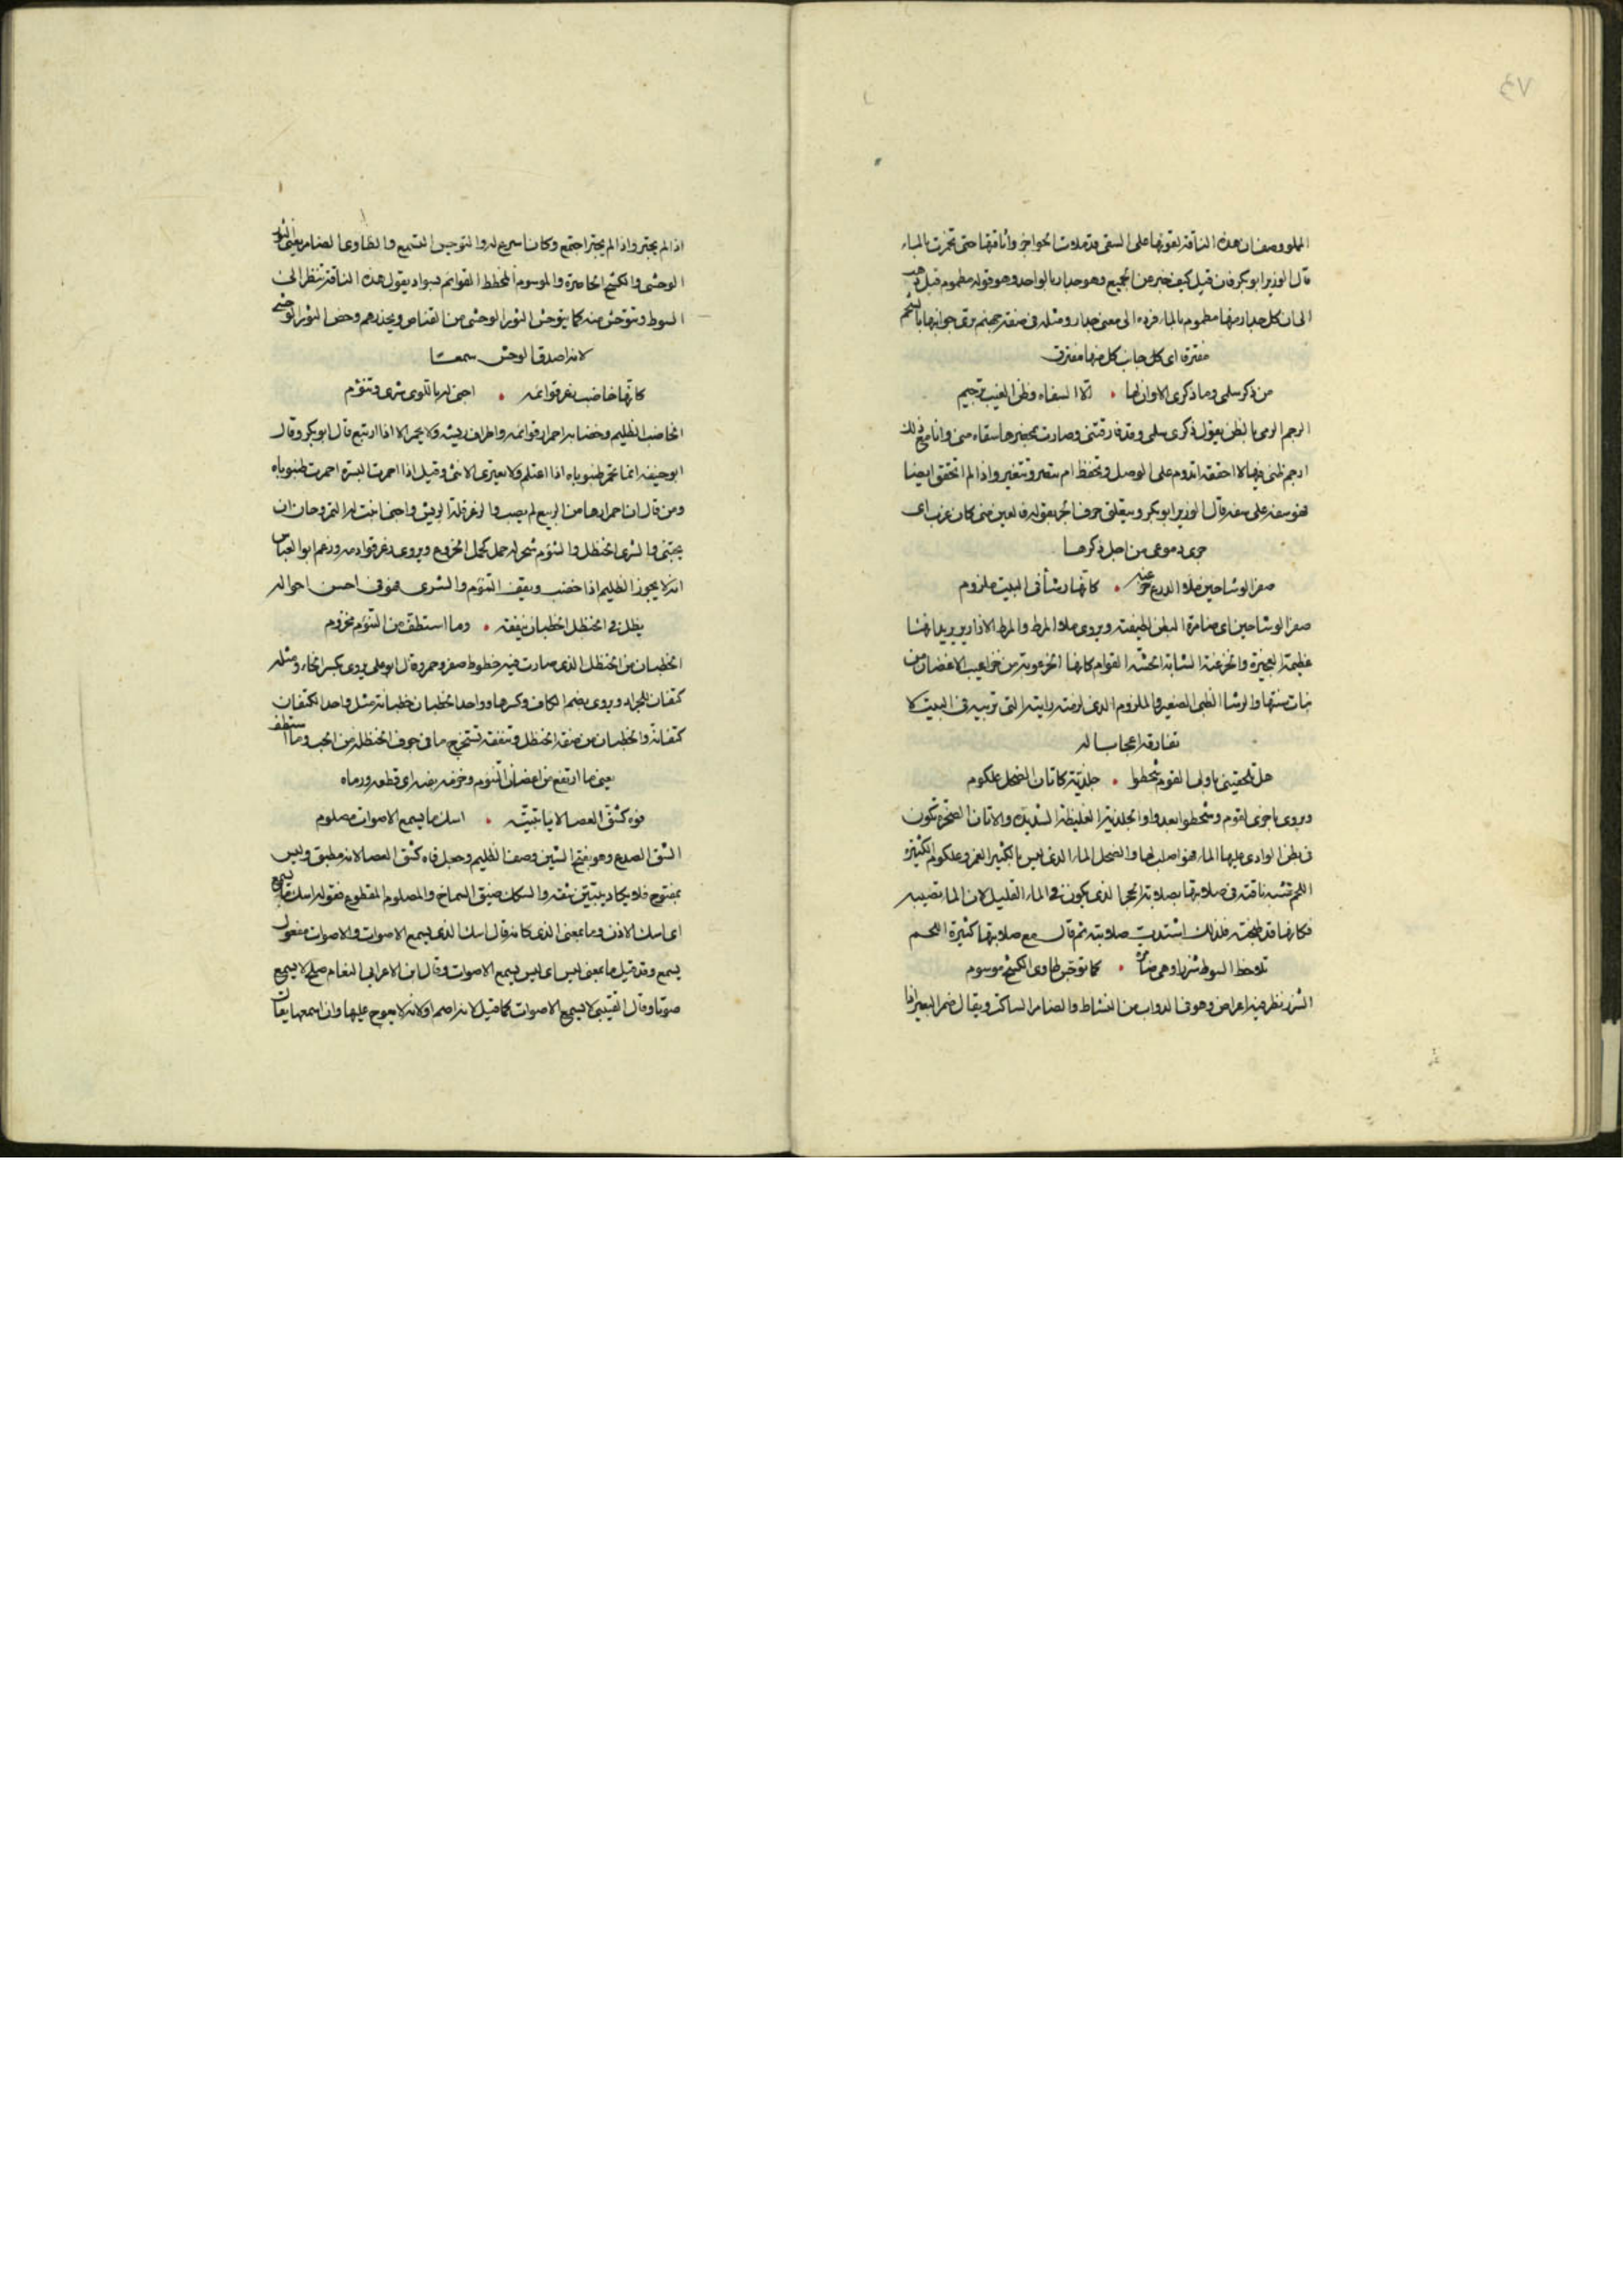 ٧٤
المملو وصف ان هذه الناقة لقوتها على السقى قد ملات الحواجز واتاقتها حتى تحيزت بالماء
قال الوزير ابو بكر فان قيل كيف خبر عن الجميع وهو جدار بالواحد وهو قوله مطموم قيل ذهب
الى ان كل جدار منها مطموم بالماء فرده الى معنى جدار ومثله فى صفة جهنم يرقى جوانبها بالشحم
مفترقا اى كل جانب كل منها مفترق
من ذكر سلمى وما ذكرى الاوان لها • الا السفاه وظن الغيب ترجيم
الرجم الرمى بالظن يقول ذكرى سلمى وقد فارقتنى وصارت بحيزها سفاه منى وانا مع ذلك
ارجم ظنى فيها لا احققه اتدوم على الوصل وتحفظ ام تتغير واذا لم اتحقق ايضا
فهو سفه على سفه قال الوزير ابو بكر ويتعلق حرف الجر بقوله فالعين منى كان غرب اى
جرى دموعى من اجل ذكرها
صفر الوشاحين ملا الدرع خرعبة • كانها رشأ فى البيت ملزوم
صفر الوشاحين اى ضامرة البطن لطيفته ويروى ملا المرط والمرط الازار يريد انها
عظيمة العجيزة والخرعبة الشابة الحسنة القوام كانها الخرعوبة من خراعيب الاغصان من
نبات سنتها والرشا الظبى الصغير والملزوم الذى لزمته رابيته التى تربيه فى البيت لا
تفارقه اعجابا له
هل تلحقينى باولى القوم اذ شحطوا • جلذية كاتان الضحل علكوم
ويروى باخرى القوم وشحطوا بعدوا والجلذية الغليظة الشديدة والاتان الصخرة تكون
فى بطن الوادى عليها الماء فهو اصلب لها والضحل الماء الذى ليس بالكثير الغمر وعلكوم الكثيرة
اللحم فشبه ناقته فى صلابتها بصلابة الحجر الذى يكون فى الماء القليل لان الماء تصيبه
فكانها قد لحجته فلذلك اشتدت صلابته ثم قال مع صلابتها كثيرة اللحم
تلاحظ السوط شزرا وهى ضامزة • كما توجس طاوى الكشح موسوم
الشزر نظر فيه اعراض وهو فى الدواب من النشاط والضامز الساكت ويقال ضمز البعير اذا
اذا لم يجتر واذا لم يجتر اجتمع وكان اسرع له والتوجس التسمع والطاوى الضامر يعنى الثور
الوحشى والكشح الخاصرة والموسوم المخطط القوائم بسواد يقول هذه الناقة تنظر الى
السوط وتتوجس منه كما يتوجس الثور الوحشى من القناص ويحذرهم وخص الثور الوحشى
لانه اصدق الوحش سمعا
كانها خاضب زعر قوائمه • اجنى له باللوى شرى وتنوم
الخاضب الظليم وخضابه احمرار قوائمه واطراف ريشه ولا يحمر الا اذا ارتبع قال ابو بكر وقال
ابو حنيفه انما تحمر ظنبوباه اذا اغتلم ولا يعترى الانثى وقيل اذا احمرت البسرة احمرت ظنبوباه
ومن قال ان احمرارها من الربيع لم يصب والزعر قلة الريش واجنى اخت له الثمر وحان ان
يجتنى والشرى الحنظل والتنوم شجر له حمل كحمل الخروع ويروى زعر قوادمه وزعم ابو العباس
انه لا يجوز الظليم اذا خضب ويقف التنوم والشرى فهو فى احسن احواله
يظل فى الحنظل الخطبان ينقفه • وما استطف من التنوم مخذوم
الخطبان من الحنظل الذى صارت فيه خطوط صفر وحمر وقال ابو على يروى بكسر الخاء ومثله
كتفان للجراد ويروى بضم الكاف وكسرها وواحد الخطبان خطبانة مثل واحد الكتفان
كتفانة والخطبان من صفة الحنظل وتنقفه تستخرج ما فى جوف الحنظلة من الحب وما استطف
يعنى ما ارتفع من اغصان التنوم وخرمه اى قطعه ورماه
فوه كشق العصا لايا تبينه • اسك ما يسمع الاصوات مصلوم
الشق الصدع وهو بفتح الشين وصف الظليم وجعل فاه كشق العصا لانه مطبق وليس
بمفتوح فلا يكاد يتبين شقه والسكك ضيق الصماخ والمصلوم المقطوع فقوله اسك ما يسمع
اى اسك الاذن وما بمعنى الذى كانه قال اسك الذى يسمع الاصوات والاصوات مفعول
يسمع وقد قيل ما بمعنى ليس اى ليس يسمع الاصوات وقال ابن الاعرابى النعام صلخ لا يسمع
صوتا وقال القتيبى لا يسمع الاصوات كما قيل لانه اصم او لانه لا يعوج عليها وان اسمعها يقال